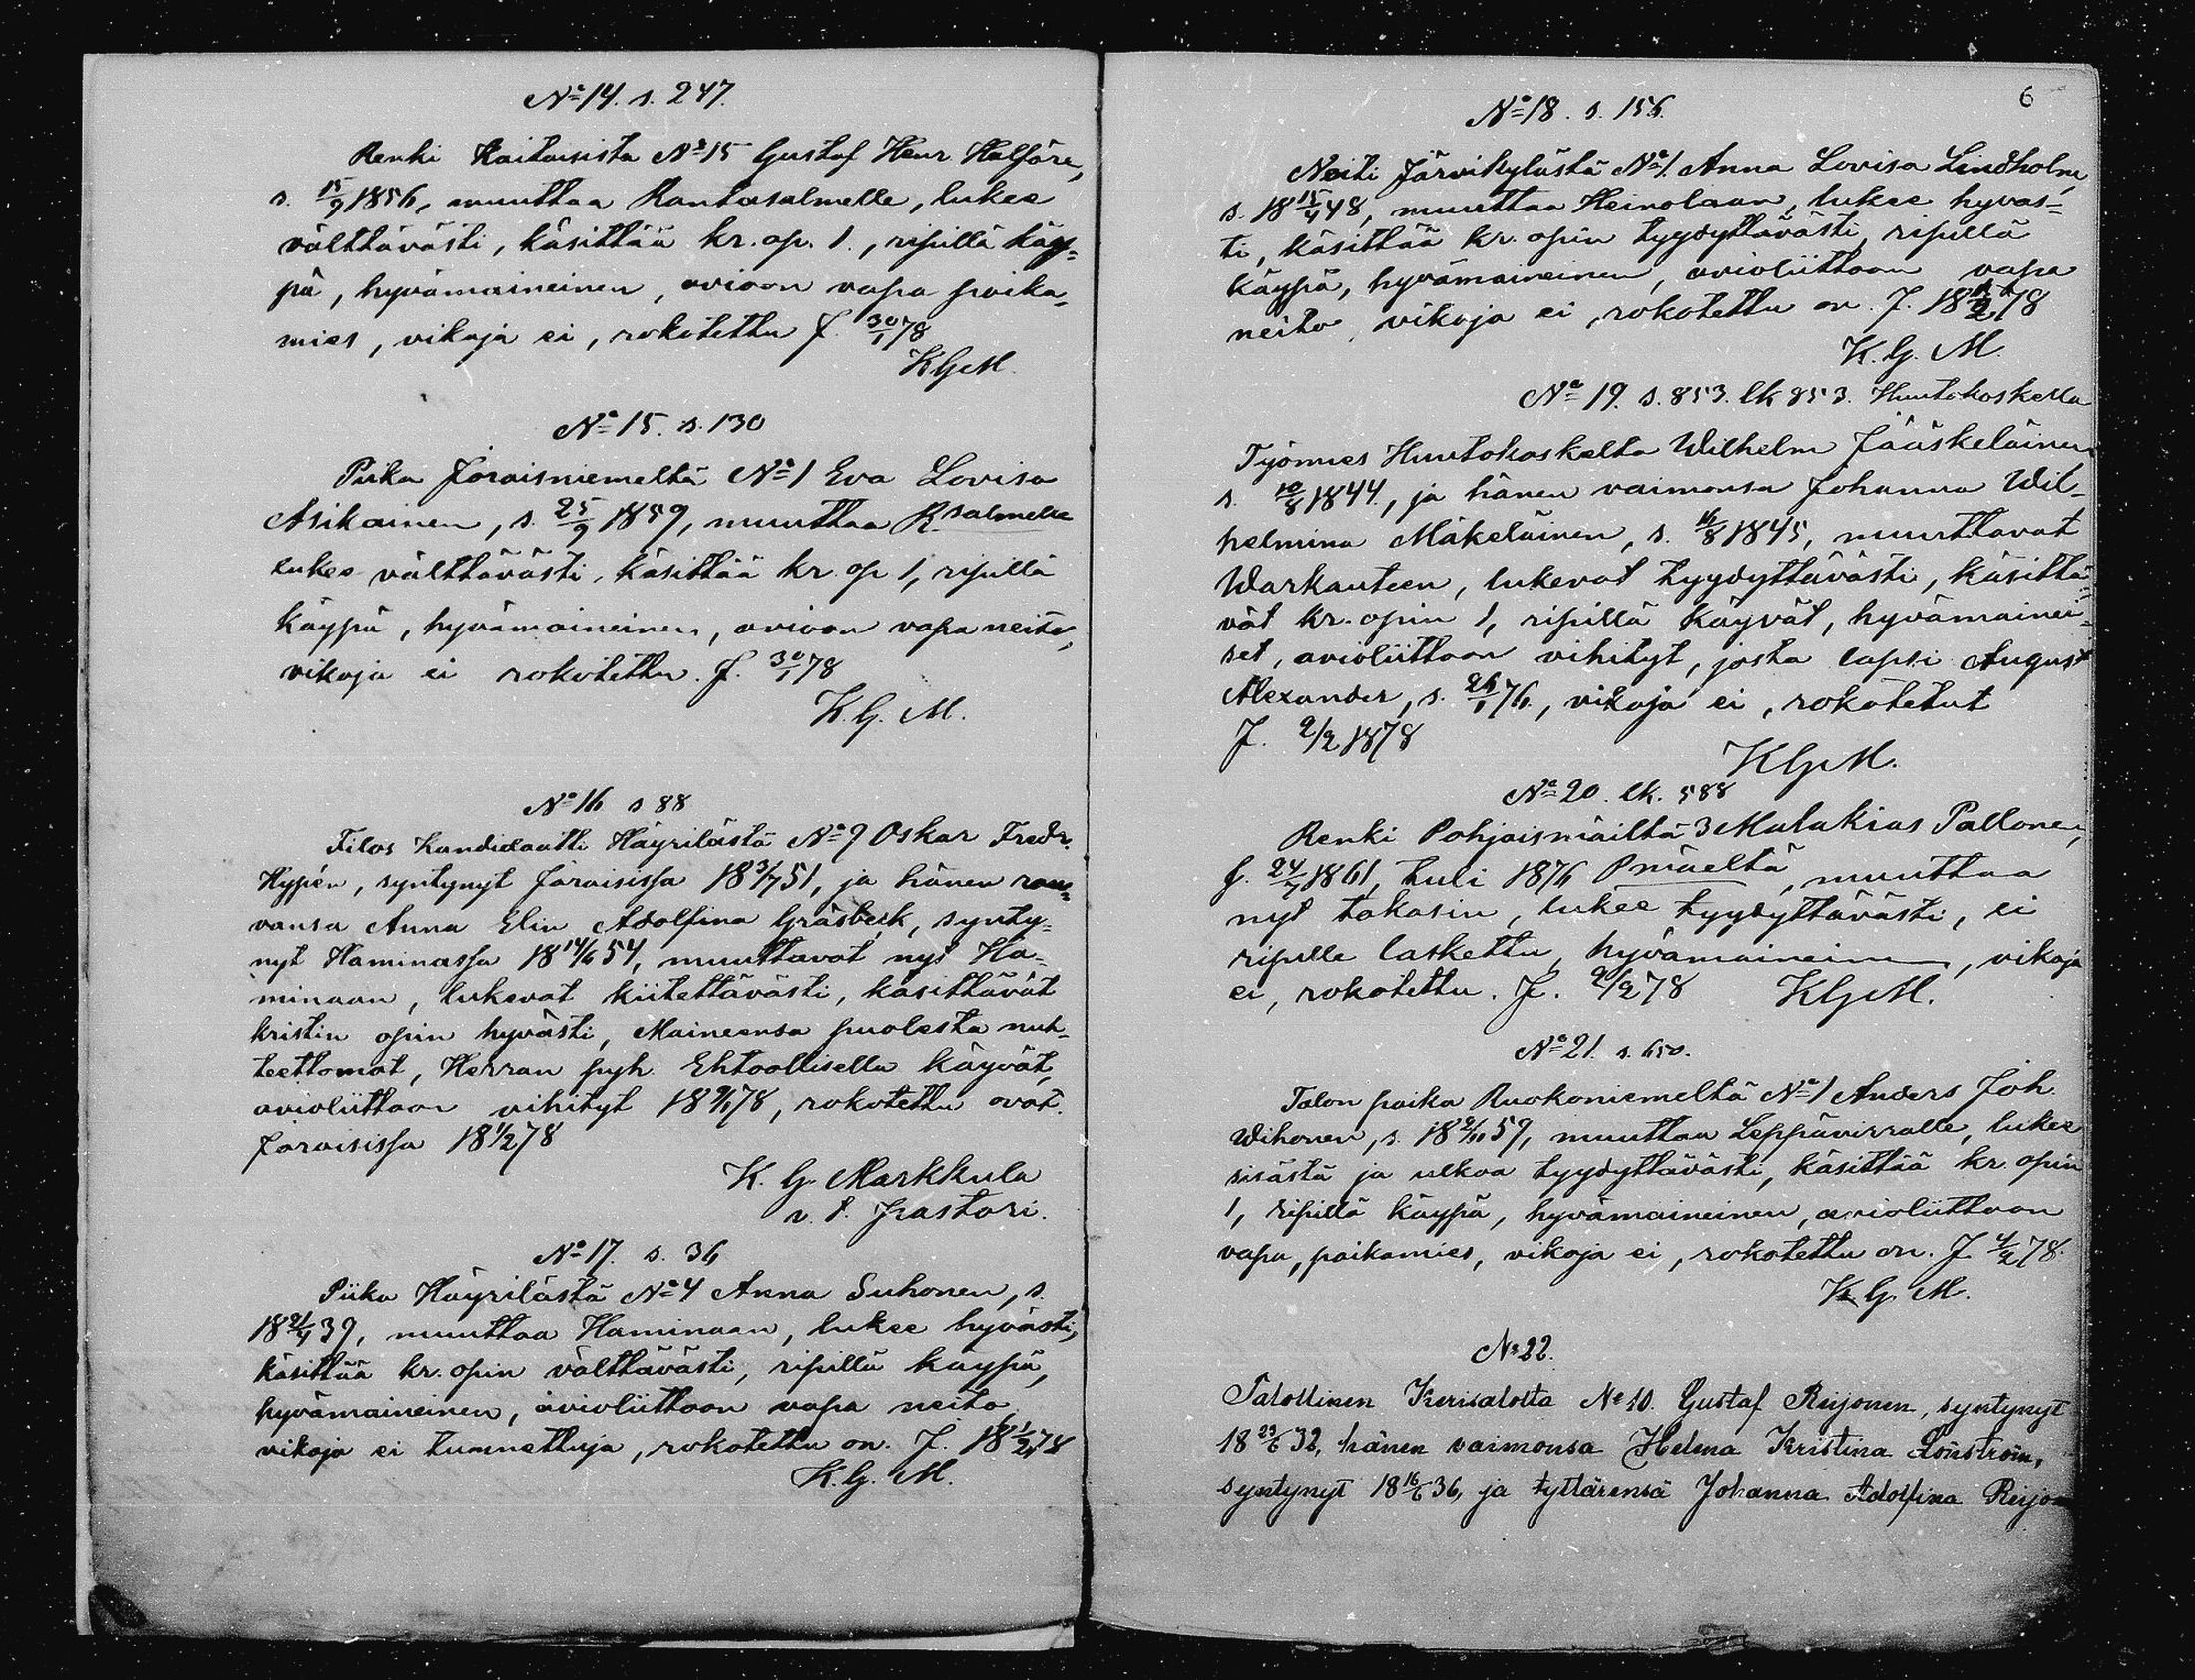 Nº 14. s. 247.
Renki Kaitaisista Nº 15 Gustaf Henr. Halfäre,
s. 15/9 1856, muuttaa Rantasalmelle, lukee
välttävästi, käsittää kr. op. 1., ripillä käy=
pä, hyvämaineinen, avioon vapa poika=
mies, vikoja ei, rokotettu J. 30/1 78
KGM.
Nº 15. s. 130
Piika Joroisniemeltä Nº 1 Eva Lovisa
Asikainen, s. 25/9 1859, muuttaa R.salmelle
lukee välttävästi, käsittää kr. op 1, ripillä
käypä, hyvämaineinen, avioon vapa neito,
vikoja ei rokotettu. J. 30/1 78
K. G. M.
Nº 16 s 88
Filos Kandidaatti Häyrilästä Nº 9 Oskar Fredr.
Hypén, syntynyt Joroisissa 18 3/7 51, ja hänen rou=
vansa Anna Elin Adolfina Gräsbeck, synty=
nyt Haminassa 18 14/6 54, muuttavat nyt Ha=
minaan, lukevat kiitettävästi, käsittävät
kristin opin hyvästi, Maineensa puolesta nuh=
teettomat, Herran pyh. Ehtoollisella käyvät,
avioliittoon vihityt 18 9/1 78, rokotettu ovat.
Joroisissa 18 1/2 78
K. G. Markkula
v. t. pastori.
Nº 17. s. 36
Piika Häyrilästä Nº 4 Anna Suhonen, s.
18 21/4 39, muuttaa Haminaan, lukee hyvästi,
käsittää kr. opin välttävästi, ripillä käypä,
hyvämaineinen, avioliittoon vapa neito,
vikoja ei tunnettuja, rokotettu on. J. 18 1/2 78
K. G. M.
6
Nº 18. s. 156.
Neiti Järvikylästä Nº 1. Anna Lovisa Lindholm,
s. 18 15/4 48, muuttaa Heinolaan, lukee hyväs=
ti, käsittää kr. opin tyydyttävästi, ripillä
käypä, hyvämaineinen, avioliittoon vapa
neito, vikoja ei, rokotettu on. J. 18 /2 78
K. G. M.
Nº 19. s. 853. lk 853. Huutokoskella
Työmies Huutokoskelta Wilhelm Jääskeläinen
s. 10/8 1844, ja hänen vaimonsa Johanna Wil=
helmina Mäkeläinen, s. 16/8 1845, muuttavat
Warkauteen, lukevat tyydyttävästi, käsittä=
vät kr. opin 1, ripillä käyvät, hyvämainei=
set, avioliittoon vihityt, josta lapsi August
Alexander, s. 26/1 76, vikoja ei, rokotetut
J. 2/2 1878
KGM.
Nº 20. lk. 588
Renki Pohjoismäiltä 3 Malakias Pallonen,
s. 24/7 1861, tuli 1876 Pmäeltä, muuttaa
nyt takasin, lukee tyydyttävästi, ei
ripille laskettu, hyvämaineinen, vikoja
ei, rokotettu. J. 2/2 78 KGM.
Nº 21. s. 650.
Talon poika Ruokoniemeltä Nº 1 Anders Joh.
Wihonen, s. 18 2/11 59, muuttaa Leppävirralle, lukee
sisästä ja ulkoa tyydyttävästi, käsittää kr. opin
1, ripillä käypä, hyvämaineinen, avioliittoon
vapa, poikamies, vikoja ei, rokotettu on. J. 4/2 78.
K. G. M.
Nº 22.
Talollinen Kerisalolta Nº 10. Gustaf Reijonen, syntynyt
18 23/6 32, hänen vaimonsa Helena Kristina Lönström,
syntynyt 18 16/6 36, ja tyttärensä Johanna Adolfina Reijo